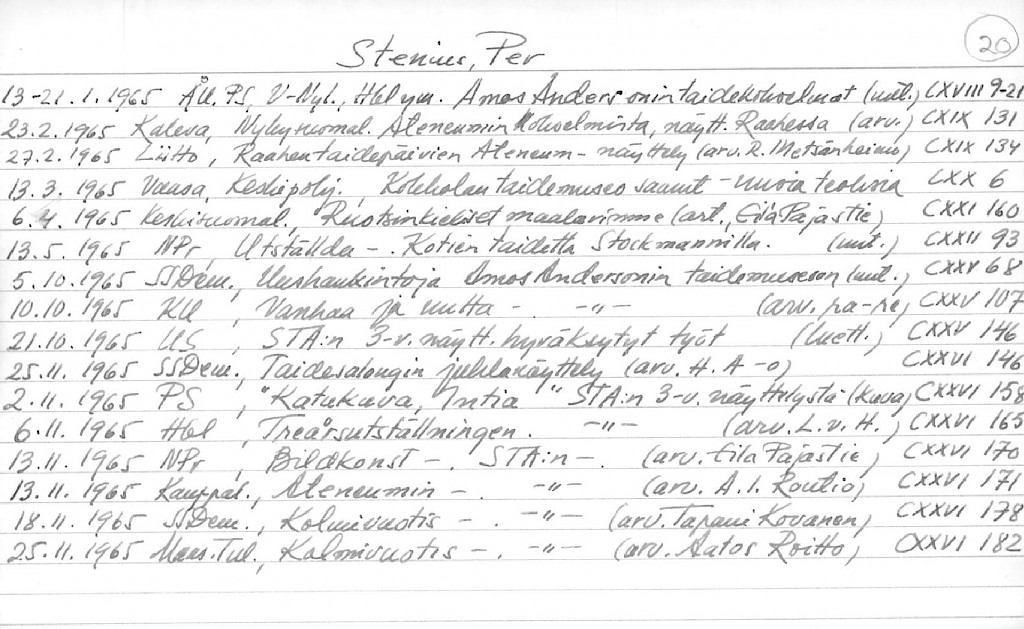 20
Stenius, Per
13-21.1.1965 ÅU, PS, V-Nyl., Hbl ym. Amos Andersonin taidekokoelmat (uut.) CXVIII 9-21
23.2.1965 Kaleva, Nykysuomal. Ateneumin kokoelmista, näytt. Raahessa (arv.) CXIX 131
27.2.1965 Liitto, Raahen taidepäivien Ateneum-näyttely (arv. R. Metsänheimo) CXIX 134
13.3.1965 Vaasa, Keskipohj. taidemuseo saanut - uusia teoksia CXX 6
6.4.1965 Keskisuomal., Ruotsinkieliset maalarimme (art., Eila Pajastie) CXXI 160
13.5.1965 NPr, Utställda -. Kotien taidetta Stockmannilla. (uut.) CXXII 93
5.10.1965 SSDem., Uushankintoja Amos Andersonin taidemuseoon (uut.) CXXV 68
10.10.1965 KU, Vanhaa ja uutta -. -"- (arv. ra-re) CXXV 107
21.10.1965 US, STA:n 3-v. näytt. hyväksytyt työt (luett.) CXXV 146
25.11.1965 SSDem., Taidesalongin juhlanäyttely (arv. H. A-o) CXXVI 146
2.11.1965 PS, "Katukuva, Intia" STA:n 3-v. näyttelystä (kuva) CXXVI 158
6.11.1965 Hbl, Treårsutställningen. -"- (arv. L.v.H.) CXXVI 165
13.11.1965 NPr, Bildkonst -. STA:n -. (arv. Eila Pajastie) CXXVI 170
13.11.1965 Kauppal., Ateneumin -. -"- (arv. A.I. Routio) CXXVI 171
18.11.1965 SSDem., Kolmivuotis -. -"- (arv. Tapani Kovanen) CXXVI 178
25.11.1965 Maas.Tul., Kolmivuotis -. -"- (arv. Aatos Roitto) CXXVI 182